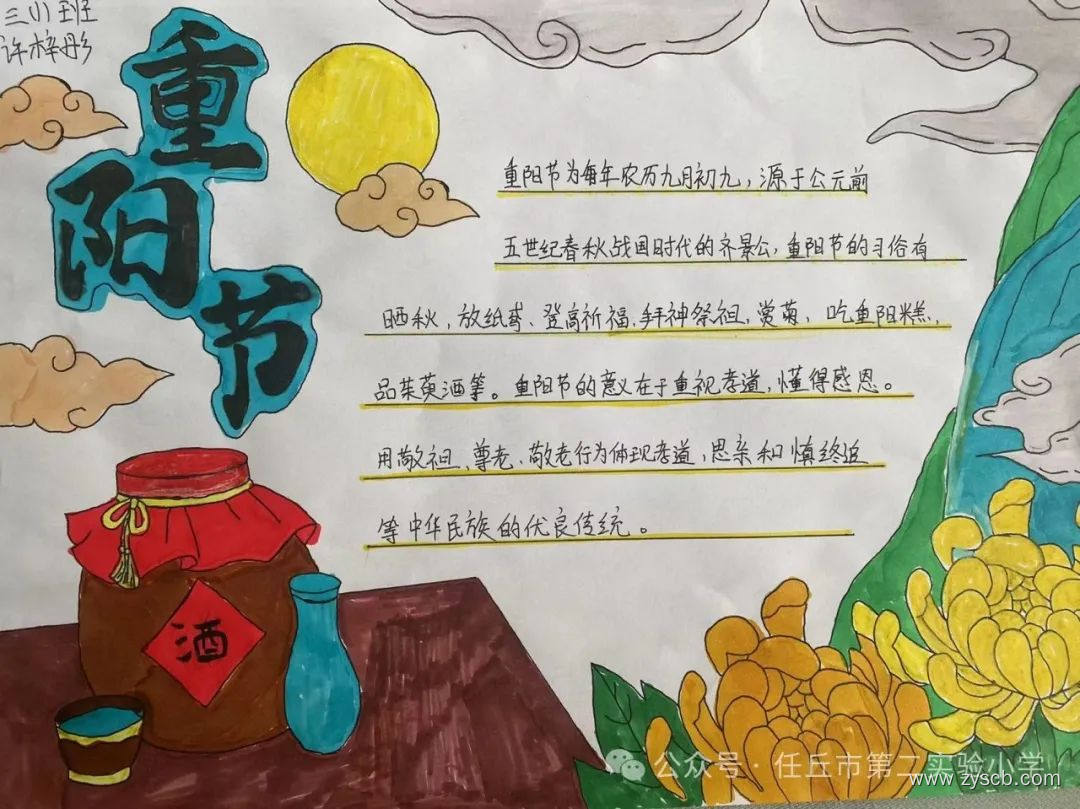 三小班
许梓彤
重阳节
重阳节为每年农历九月初九，源于公元前
五世纪春秋战国时代的齐景公，重阳节的习俗有
晒秋，放纸鸢、登高祈福、拜神祭祖、赏菊、吃重阳糕，
品茱萸酒等。重阳节的意义在于重视孝道，懂得感恩。
用敬祖、尊老、敬老行为体现孝道，思亲和慎终追
等中华民族的优良传统。
酒
公众号·任丘市第二实验小学
www.zyscb.com